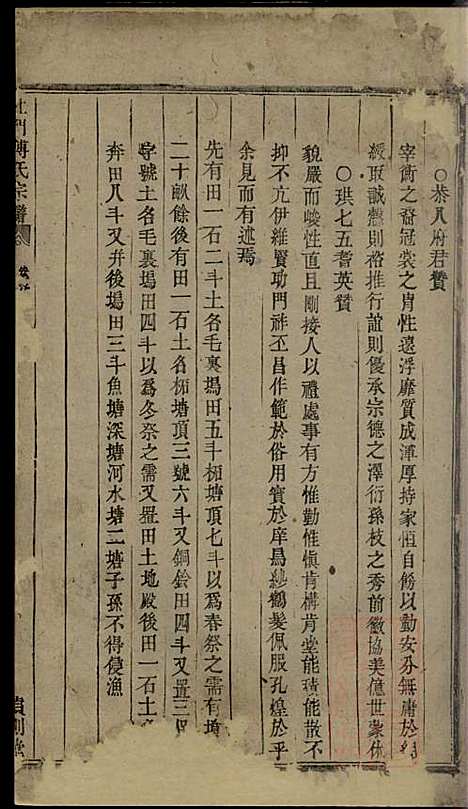 ○恭八府君贊
宰衡之裔冠裳之胄性遠浮靡質成渾厚持家恒自飭以勤安分無庸於
綬取誠慤則稽推行誼則優承宗德之澤衍孫枝之秀前徽協美億世蒙休
○珙七五耆英贊
貌嚴而峻性直且剛接人以禮處事有方惟勤惟慎肯構肯堂能積能散不
抑不亢伊維賢功門祚丕昌作範於俗用賓於庠鳧舄鶴髮佩服孔煌於乎
余見而有述焉
先有田一石二斗土名毛裏塢田五斗栢塘頂七斗以爲春祭之需有墈
二十畝餘後有田一石土名栢塘頂三號六斗又銅鈴田四斗又置三
字號土名毛裏塢田四斗以爲冬祭之需又置田土地殿後田一石土名
奔田八斗又并後塢田三斗魚塘深塘河水塘二塘子孫不得侵漁
杜門傅氏宗譜